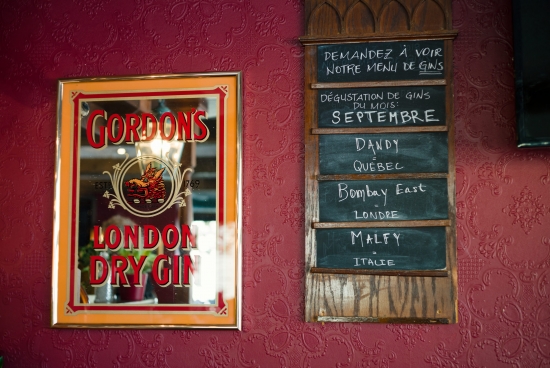 GORDON'S
LONDON
DRY GIN
DEMANDEZ À VOIR
NOTRE MENU DE GINS
DÉGUSTATION DE GINS
DU MOIS:
SEPTEMBRE
DANDY
-
QUÉBEC
Bombay East
-
LONDRE
MALFY
-
ITALIE